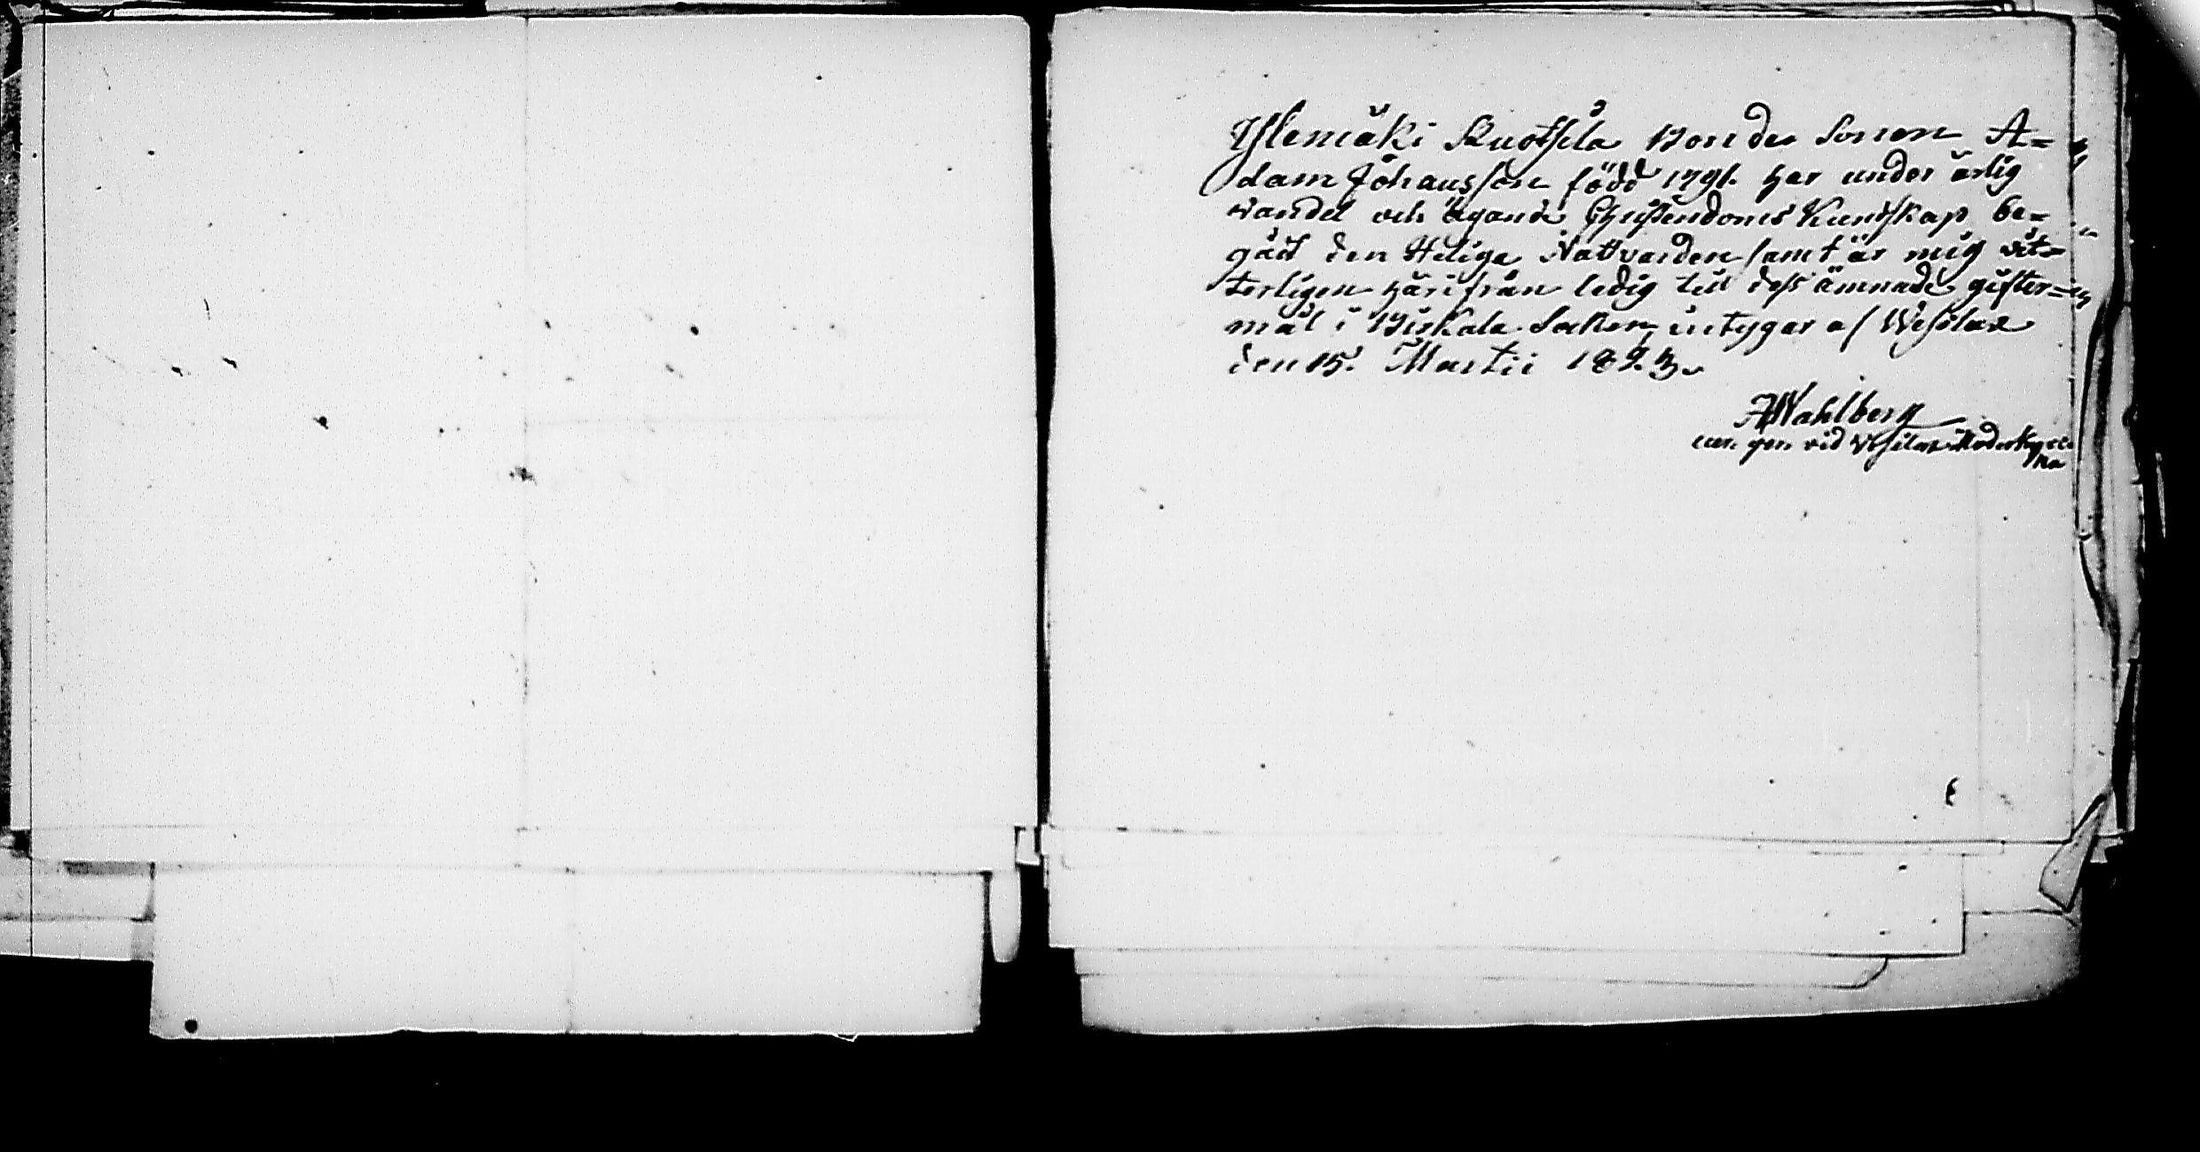 Yleniäki Ruotsila Bonde Sonen A=
dam Johansson född 1791. har under ärlig
vandel och ägande Christendoms Kundskap be=
gådt den Heliga Nattvarden samt är mig vet=
terligen härifrån ledig till dess ämnade gifter=
mål i Birkala Socken, intygar af Wesilax
den 15. Martii 1823.
A Wahlberg
vid Wesilax Moderkyrc
ka